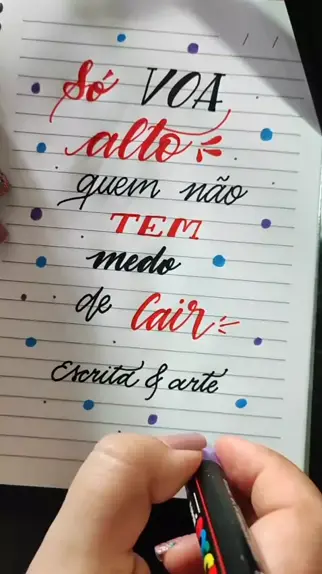 Só VOA
alto
quem não
TEM
medo
de Cair
Escrita & arte